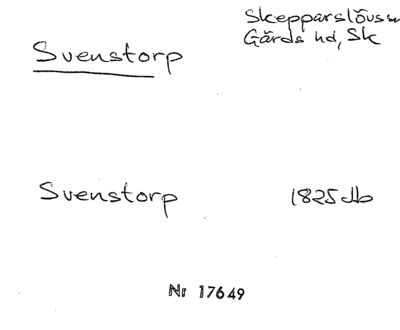 Skepparslövs sn
Gärds hd, Sk
Svenstorp
Svenstorp 1825 db
Nr 17649